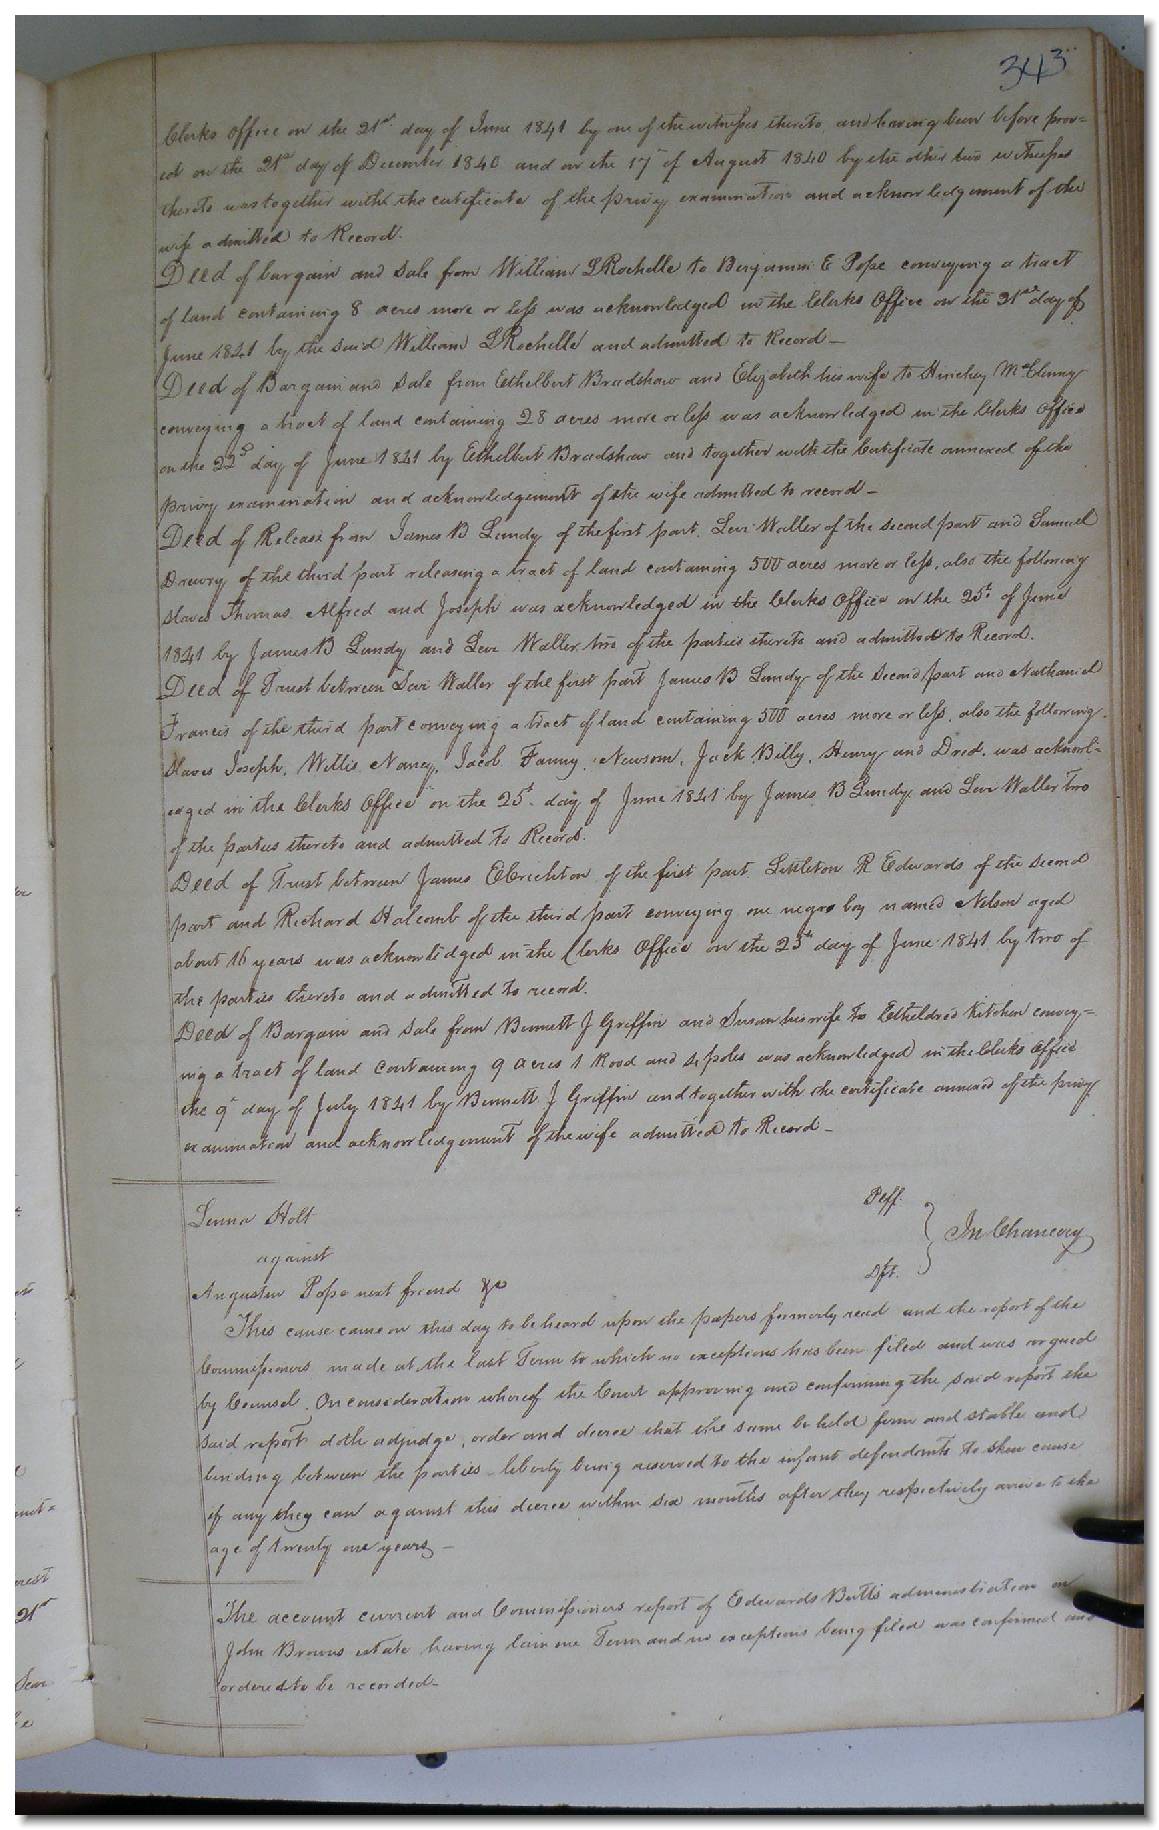 343
Clerks Office on the 21st day of June 1841 by one of the witnesses thereto and having been before prov=
ed on the 21st day of December 1840 and on the 17 of August 1840 by the other two witnesses
thereto was together with the certificate of the privy examination and acknowledgement of the
wife admitted to Record.
Deed of bargain and Sale from William L Rochelle to Benjamin E Pope conveying a tract
of land containing 8 acres more or less was acknowledged in the Clerks Office on the 21st day of
June 1841 by the said William L Rochelle and admitted to Record—
Deed of Bargain and Sale from Ethelbert Bradshaw and Elizabeth his wife to Hinchey McClenny
conveying a tract of land containing 28 acres more or less was acknowledged in the Clerks Office
on the 22d day of June 1841 by Ethelbert Bradshaw and together with the Certificate annexed of the
privy examination and acknowledgement of the wife admitted to record—
Deed of Release from James B Lundy of the first part, Levi Waller of the second part and Samuel
Drewry of the third part releasing a tract of land containing 500 acres more or less, also the following
slaves Thomas Alfred and Joseph was acknowledged in the Clerks Office on the 25t. of June
1841 by James B Lundy and Levi Waller two of the parties thereto and admitted to Record.
Deed of Trust between Levi Waller of the first part James B Lundy of the Second part and Nathaniel
Francis of the third part conveying a tract of land containing 500 acres more or less, also the following
slaves Joseph, Willis Nancy, Jacob Fanny, Newsom, Jack Billy, Henry and Dred, was acknowl=
edged in the Clerks Office on the 25t. day of June 1841 by James B Lundy and Levi Waller two
of the parties thereto and admitted to Record.
Deed of Trust between James E Crichton of the first part Littleton R Edwards of the second
part and Richard Holcomb of the third part conveying one negro boy named Nelson aged
about 16 years was acknowledged in the Clerks Office on the 25th day of June 1841 by two of
the parties thereto and admitted to record.
Deed of Bargain and Sale from Bennett J Griffin and Susan his wife to Etheldred Kitchen convey=
ing a tract of land containing 9 acres 1 Rood and 4 poles was acknowledged in the Clerks Office
the 9t day of July 1841 by Bennett J Griffin and together with the certificate annexed of the privy
examination and acknowledgement of the wife admitted to Record—
Holt Plff.
against In Chancery
Pope next friend &c Dft.
This cause came on this day to be heard upon the papers formerly read and the report of the
Commissioners made at the last Term to which no exceptions has been filed and was argued
by Counsel. On consideration whereof the Court approving and confirming the said report the
said report doth adjudge, order and decree that the same be held firm and stable and
binding between the parties—liberty being reserved to the infant defendants to shew cause
if any they can against this decree within six months after they respectively arrive to the
age of twenty one years—
The account current and Commissioners report of Edwards Butts administration on
John Browns estate having lain one Term and no exceptions being filed was confirmed and
ordered to be recorded—